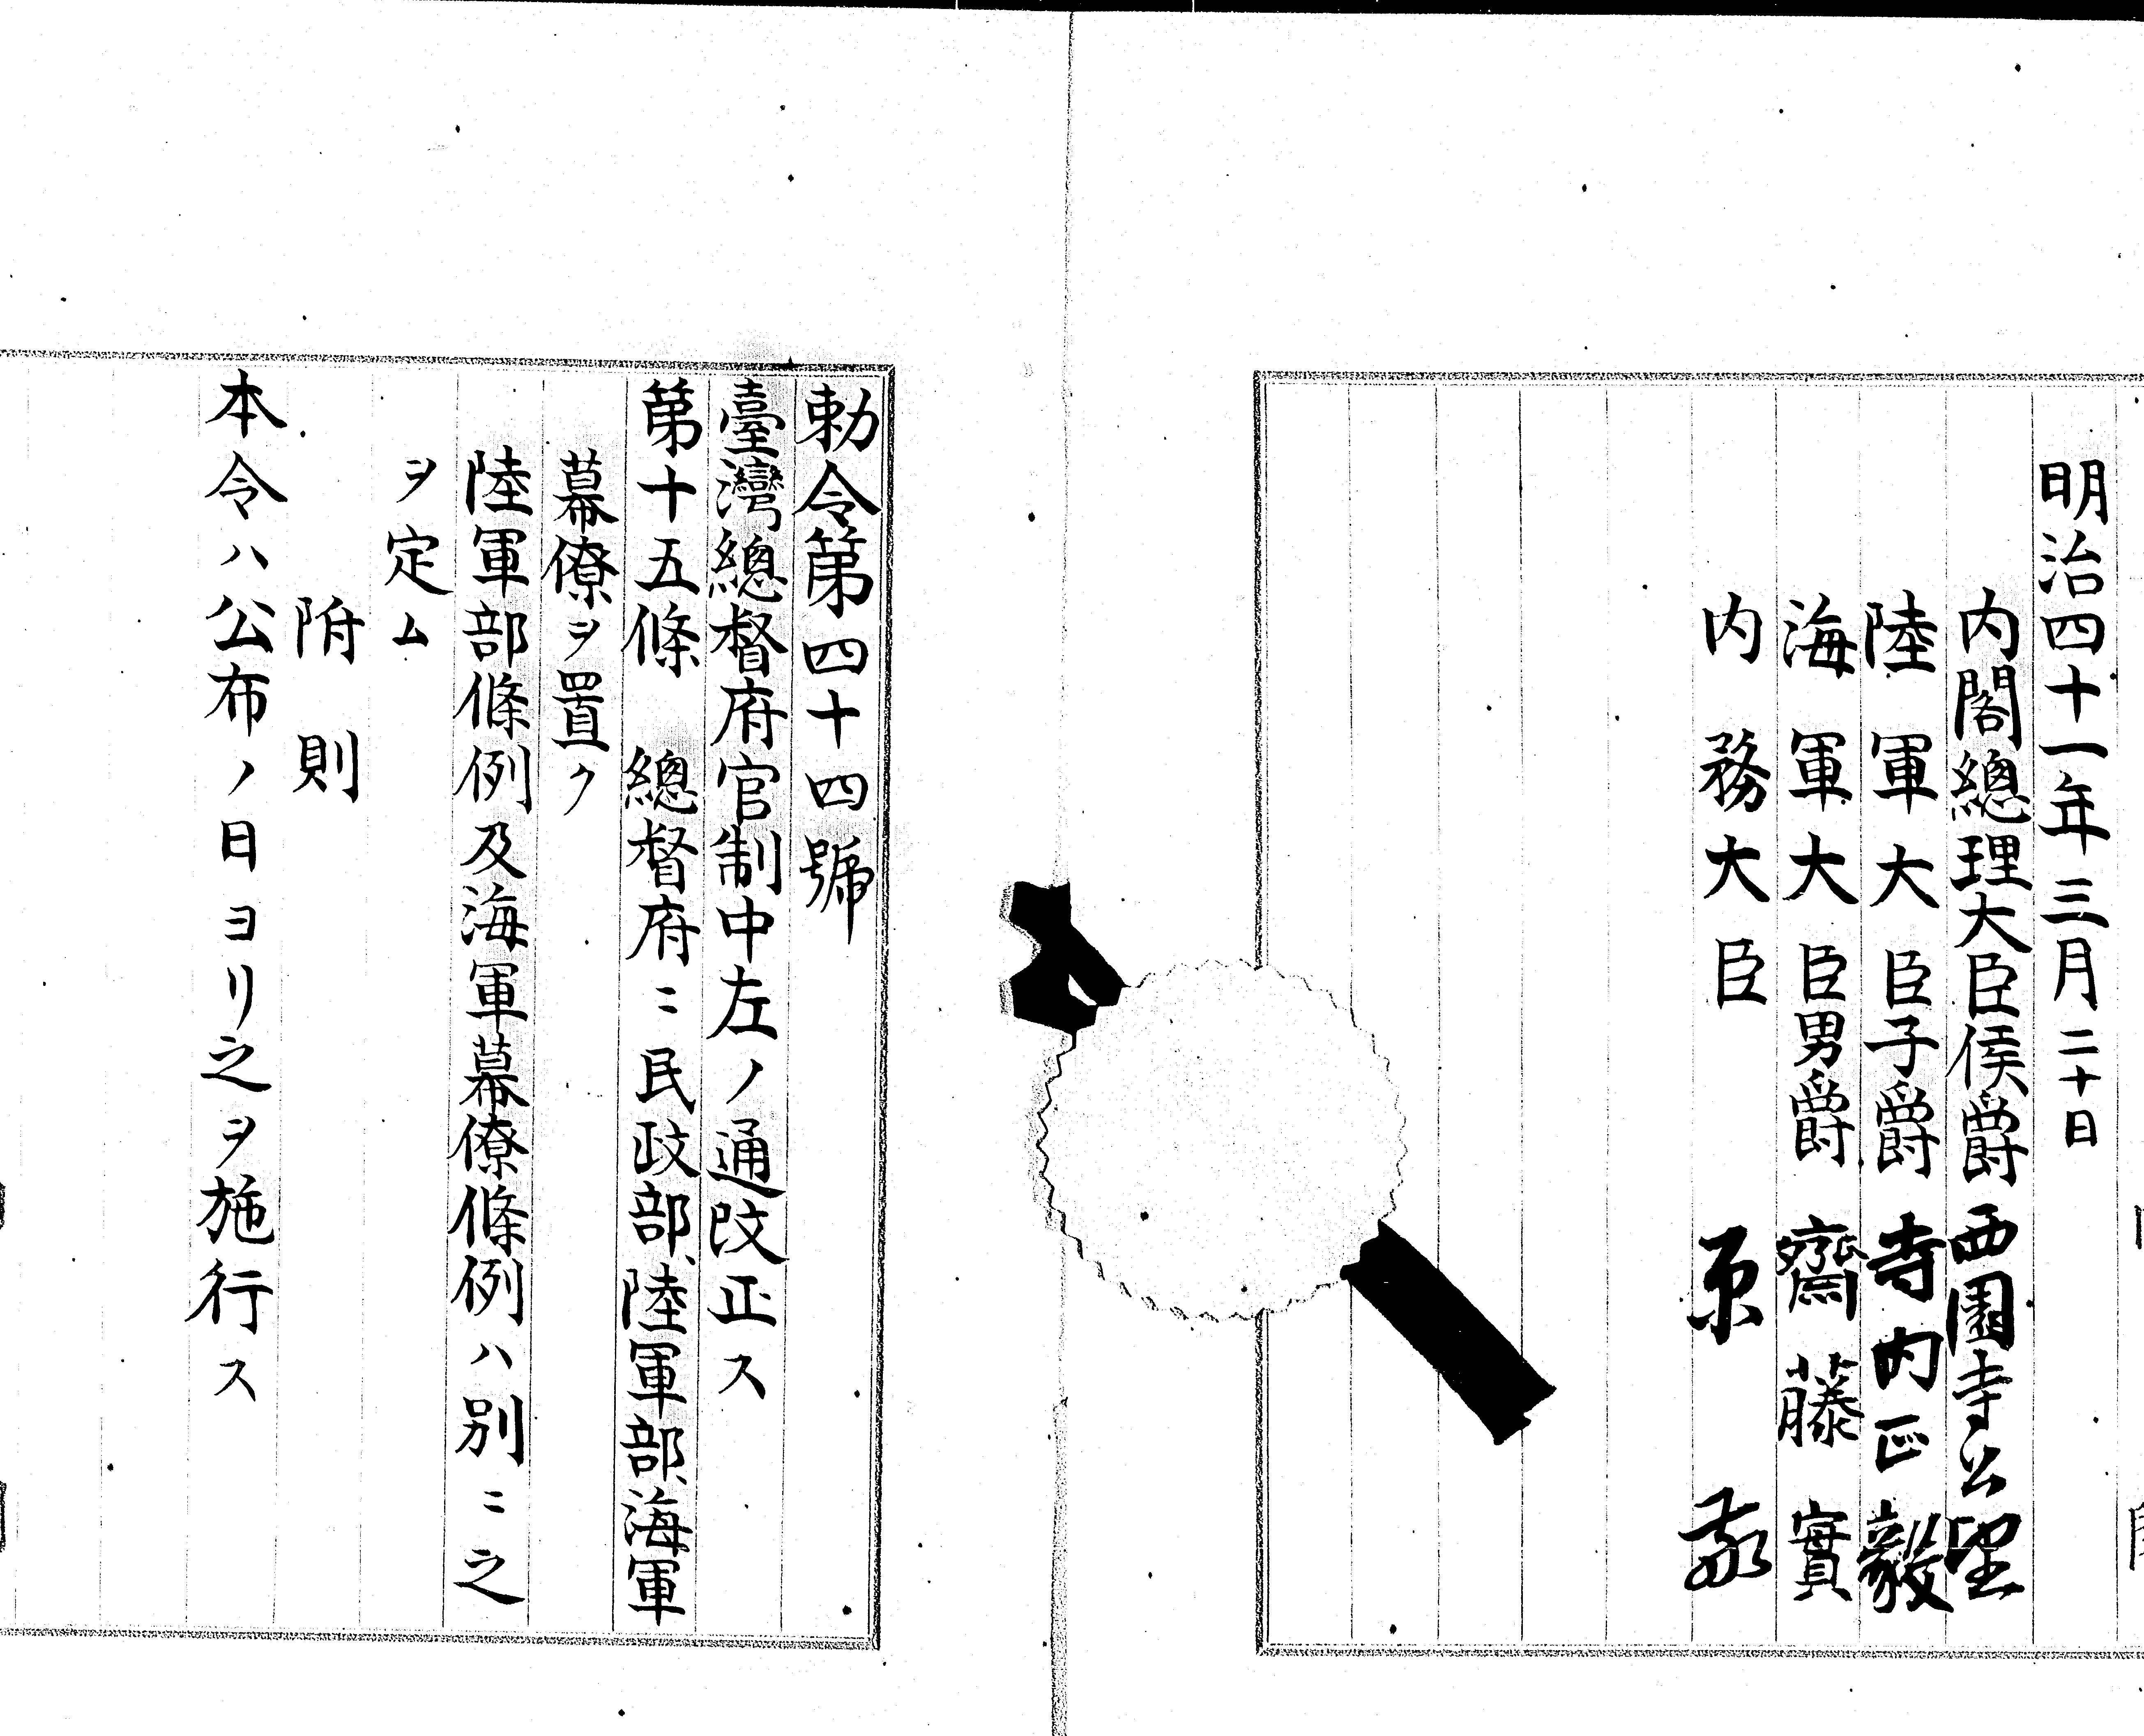 明治四十一年三月二十日
内閣總理大臣侯爵西園寺公望
陸軍大臣子爵寺内正毅
海軍大臣男爵齋藤實
内務大臣原敬
勅令第四十四號
臺灣總督府官制中左ノ通改正ス
第十五條　總督府ニ民政部、陸軍部、海軍
幕僚ヲ置ク
陸軍部條例及海軍幕僚條例ハ別ニ之
ヲ定ム
附則
本令ハ公布ノ日ヨリ之ヲ施行ス